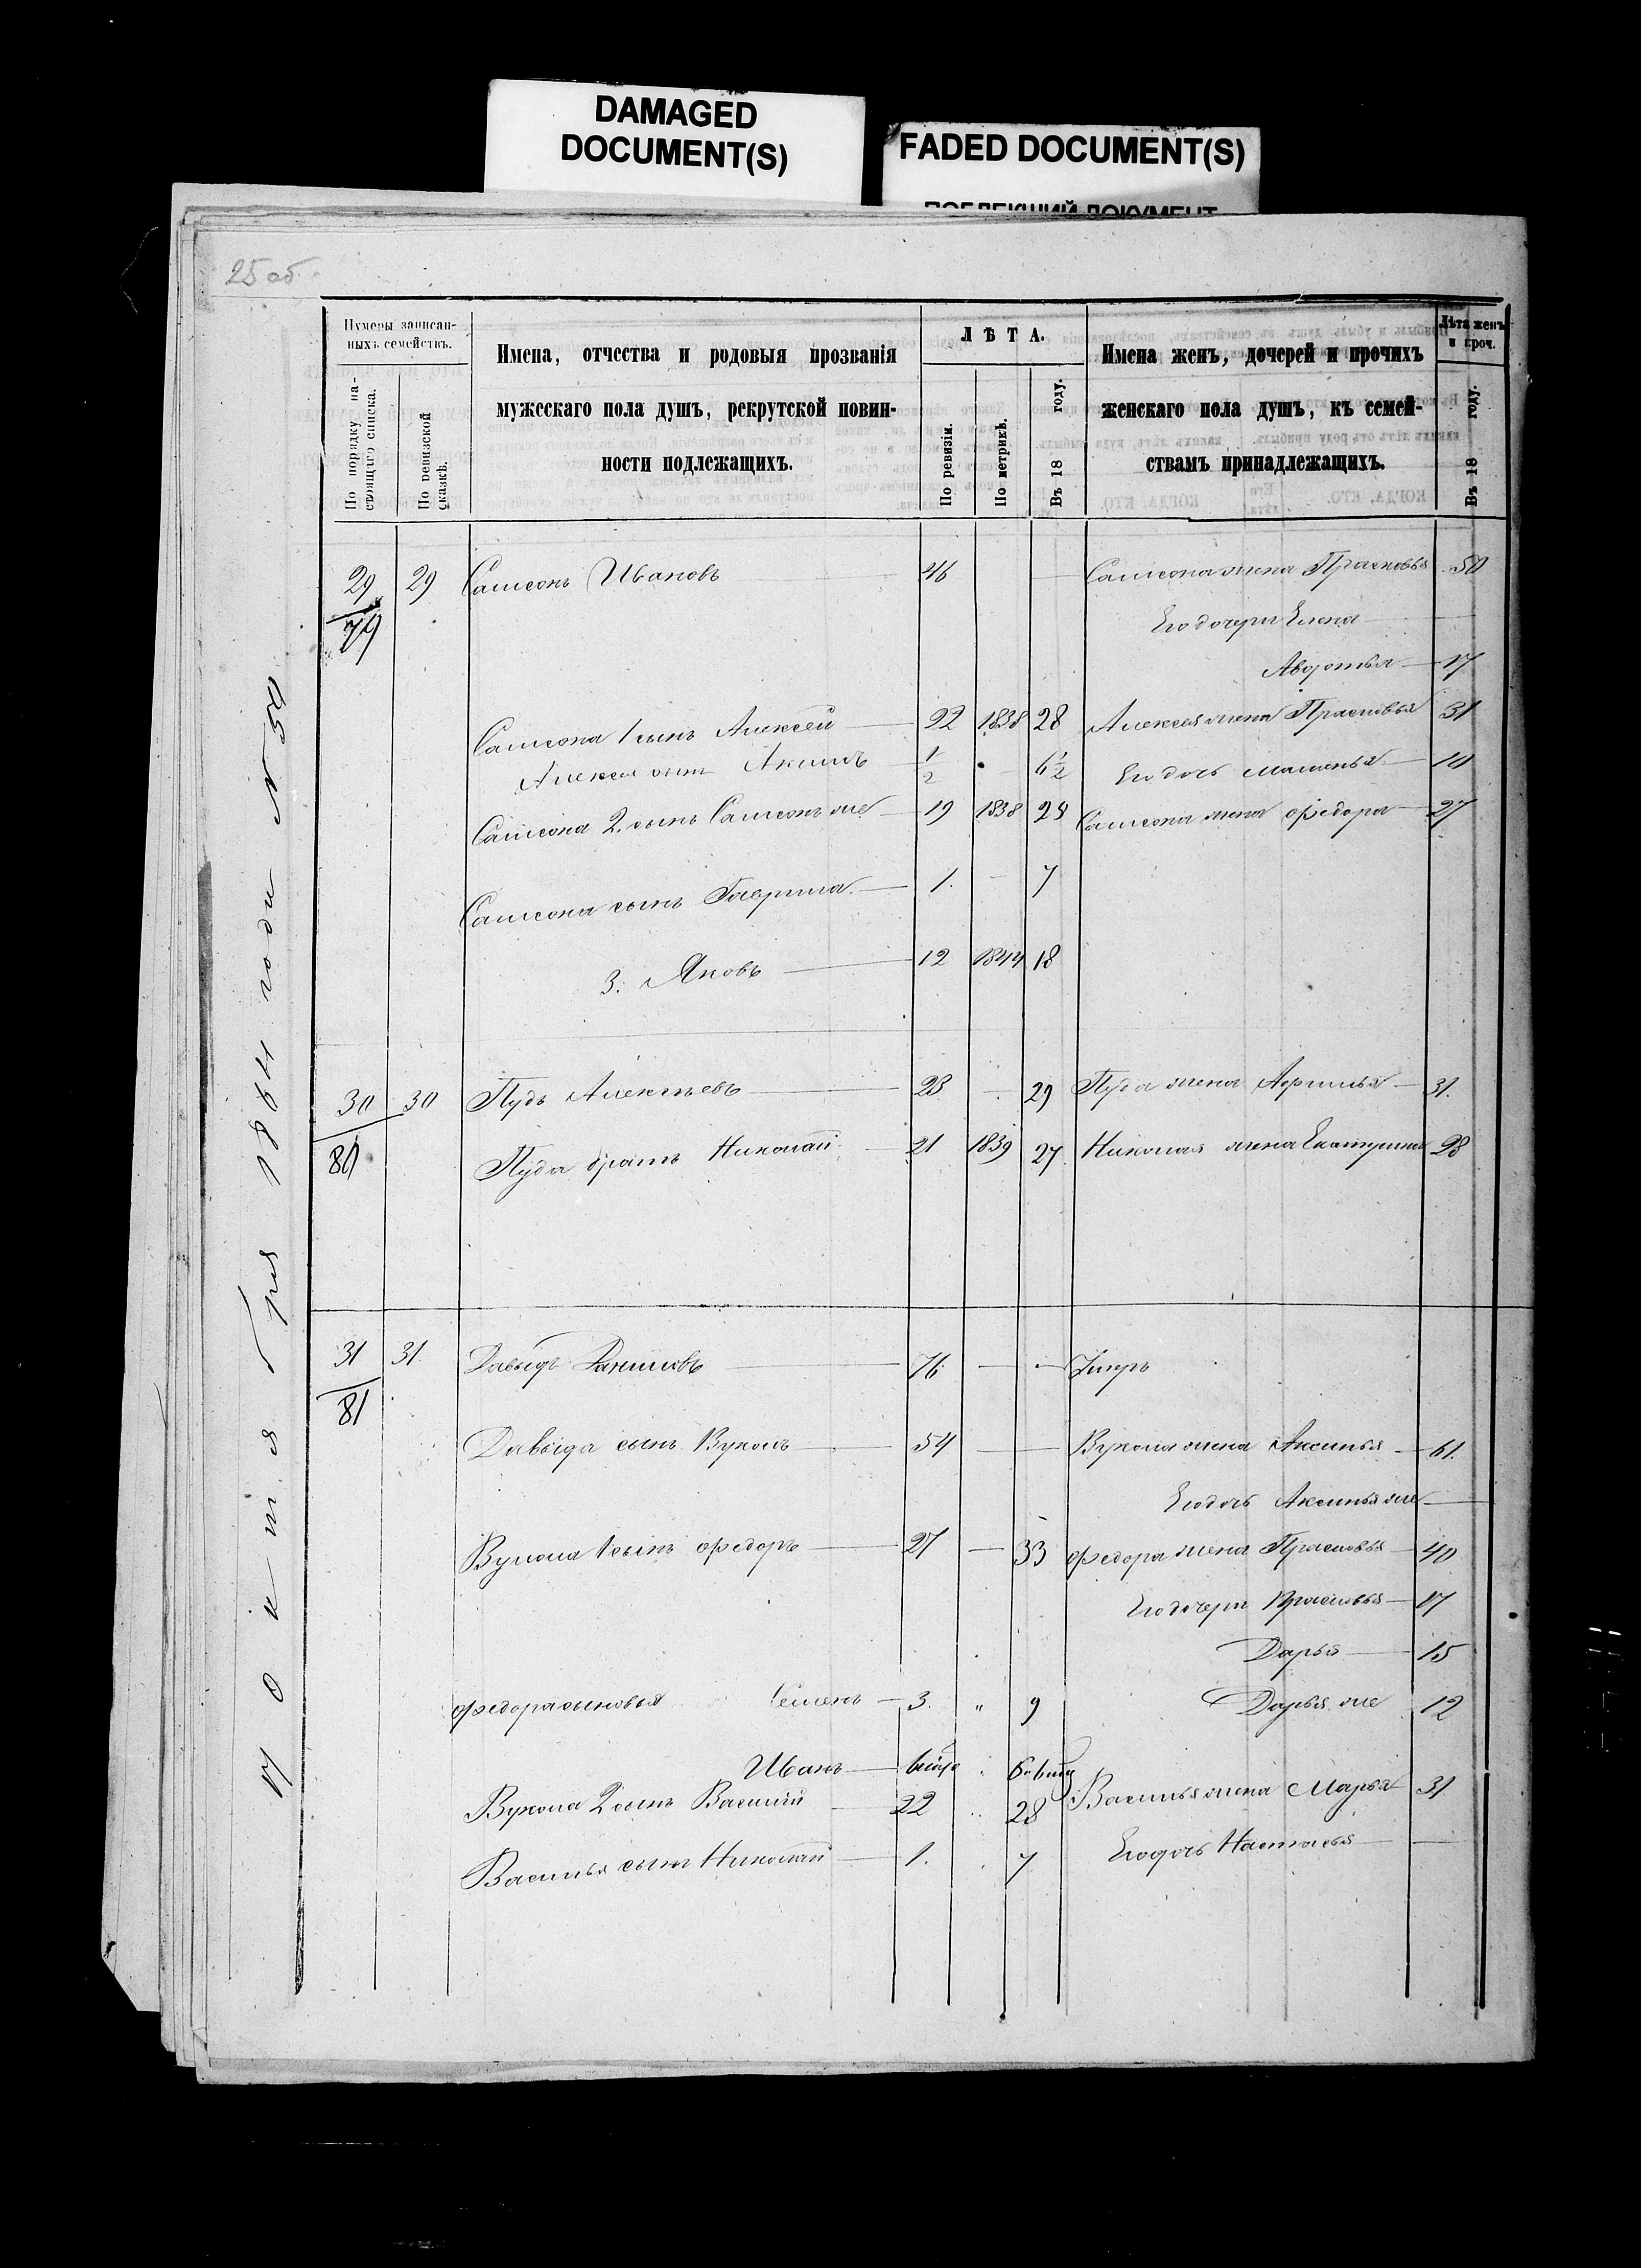 DAMAGED
DOCUMENT(S)
FADED DOCUMENT(S)
25 об.
Нумеры записан-
ныхъ семействъ.
По порядку на-
стоящаго списка.
По ревизской
сказкѣ.
Имена, отчества и родовыя прозванія
мужескаго пола душъ, рекрутской повин-
ности подлежащихъ.
ЛѢТА.
По ревизіи.
По метрикѣ.
Въ 18 году.
Имена женъ, дочерей и прочихъ
женскаго пола душъ, къ семей-
ствамъ принадлежащихъ.
Лѣта женъ
и проч.
Въ 18 году.
17 октября 1864 года № 50
29 29 Самсонъ Ивановъ 46 Самсона жена Прасковья 50
79
Его дочери Елена
Авдотья 17
Самсона 1 сынъ Алексей 22 1838 28 Алексея жена Прасковья 31
Алексея сынъ Акимъ 1/2 6 1/2 Его дочь Маланья 10
Самсона 2. сынъ Самсонъ же 19 1838 25 Самсона жена Федора 27
Самсона сынъ Гаврила 1. 7
3. Яковъ 12 1844 18
30 30 Пудъ Алексѣевъ 23 29 Пуда жена 31.
80
Пуда братъ Николай 21 1839 27 Николая жена Екатерина 28
31 31. Давыдъ Даниловъ 76. Умеръ
81
Давыда сынъ Вуколъ 54 Вукола жена Аксинья 61.
Его дочь Аксинья же
Вукола 1 сынъ Федоръ 27 33 Федора жена Прасковья 40
Его дочери Прасковья 17
Дарья 15
Федора сыновья Семенъ 3. " 9 Дарья же 12
Иванъ
Вукола 2 сынъ Василий 22 " 28 Василья жена Марья 31
Василья сынъ Николай 1. 7 Его дочь Настасья